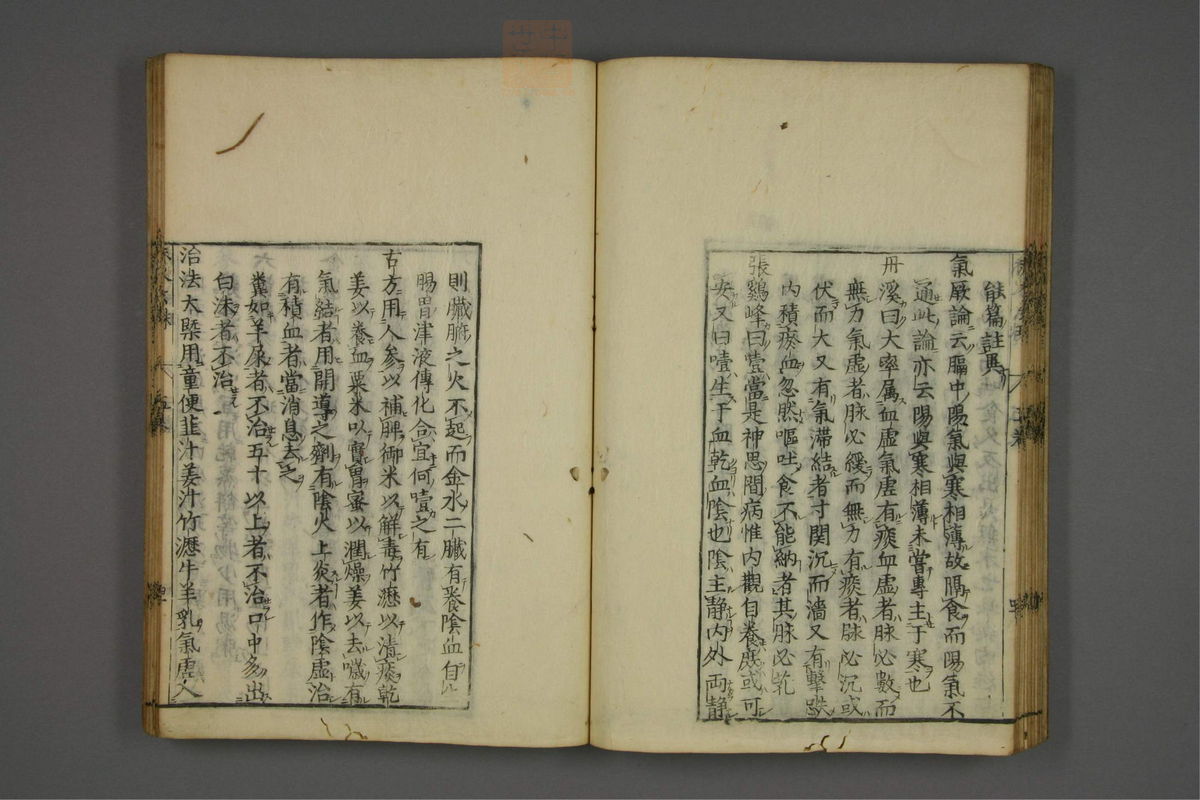 能篇註與
氣厥論云膈中陽氣與寒相薄故隔食而陽氣不
通此論亦云陽與寒相薄未嘗專主于寒也
丹溪曰大率属血虚氣虚有痰血虚者脉必數而
無力氣虚者脉必緩而無力有痰者脉必沉或
伏而大又有氣滞結者寸関沉而濇又有擊跌
内積瘀血忽然嘔吐食不能納者其脉必芤
張鷄峰曰噎當是神思間病惟内觀自養庶或可
安又曰噎生于血乾血陰也陰主静内外両静
則臓腑之火不起而金水二臓有養陰血自
腸胃津液傳化合宜何噎之有
古方用人参以補脾御米以解毒竹瀝以清痰乾
姜以養血粟米以實胃蜜以潤燥姜以去噦有
氣結者用開導之劑有陰火上炎者作陰虚治
有積血者當消息去之
糞如羊屎者不治五十以上者不治口中多出
白沫者不治
治法大槩用童便韭汁姜汁竹瀝牛羊乳氣虚入